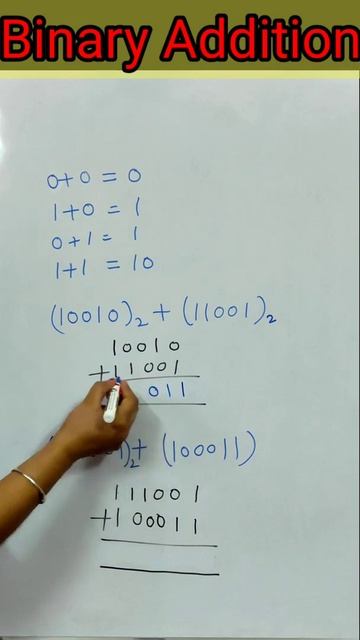 Binary Addition
0+0 = 0
1+0 = 1
0+1 = 1
1+1 = 10
(10010)₂ + (11001)₂
10010
+11001
011
)₂+ (100011)
111001
+100011